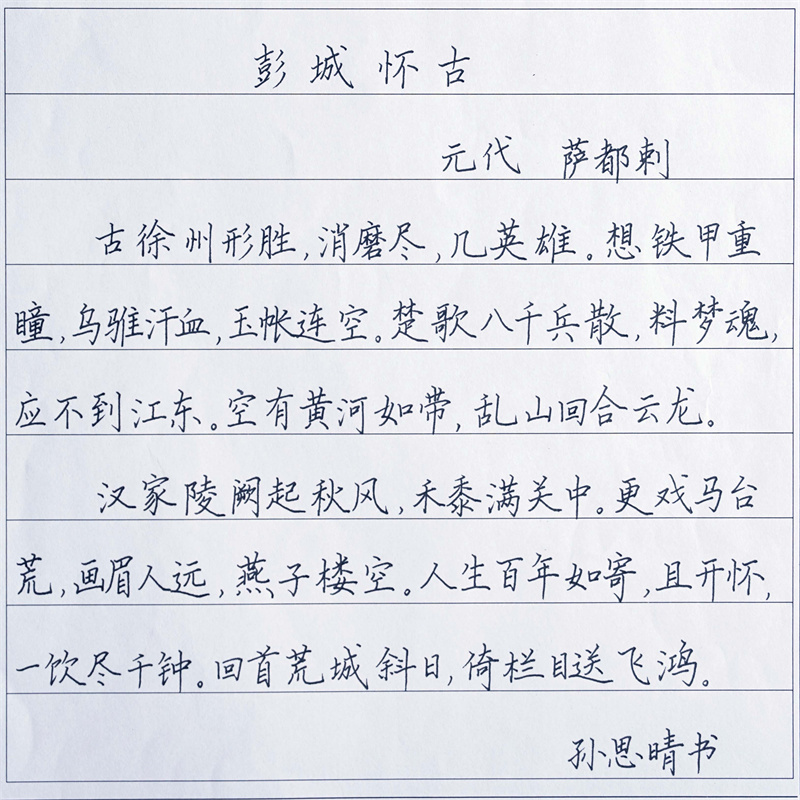 彭城怀古
元代 萨都剌
古徐州形胜,消磨尽,几英雄。想铁甲重
瞳,乌骓汗血,玉帐连空。楚歌八千兵散,料梦魂,
应不到江东。空有黄河如带,乱山回合云龙。
汉家陵阙起秋风,禾黍满关中。更戏马台
荒,画眉人远,燕子楼空。人生百年如寄,且开怀,
一饮尽千钟。回首荒城斜日,倚栏目送飞鸿。
孙思晴书